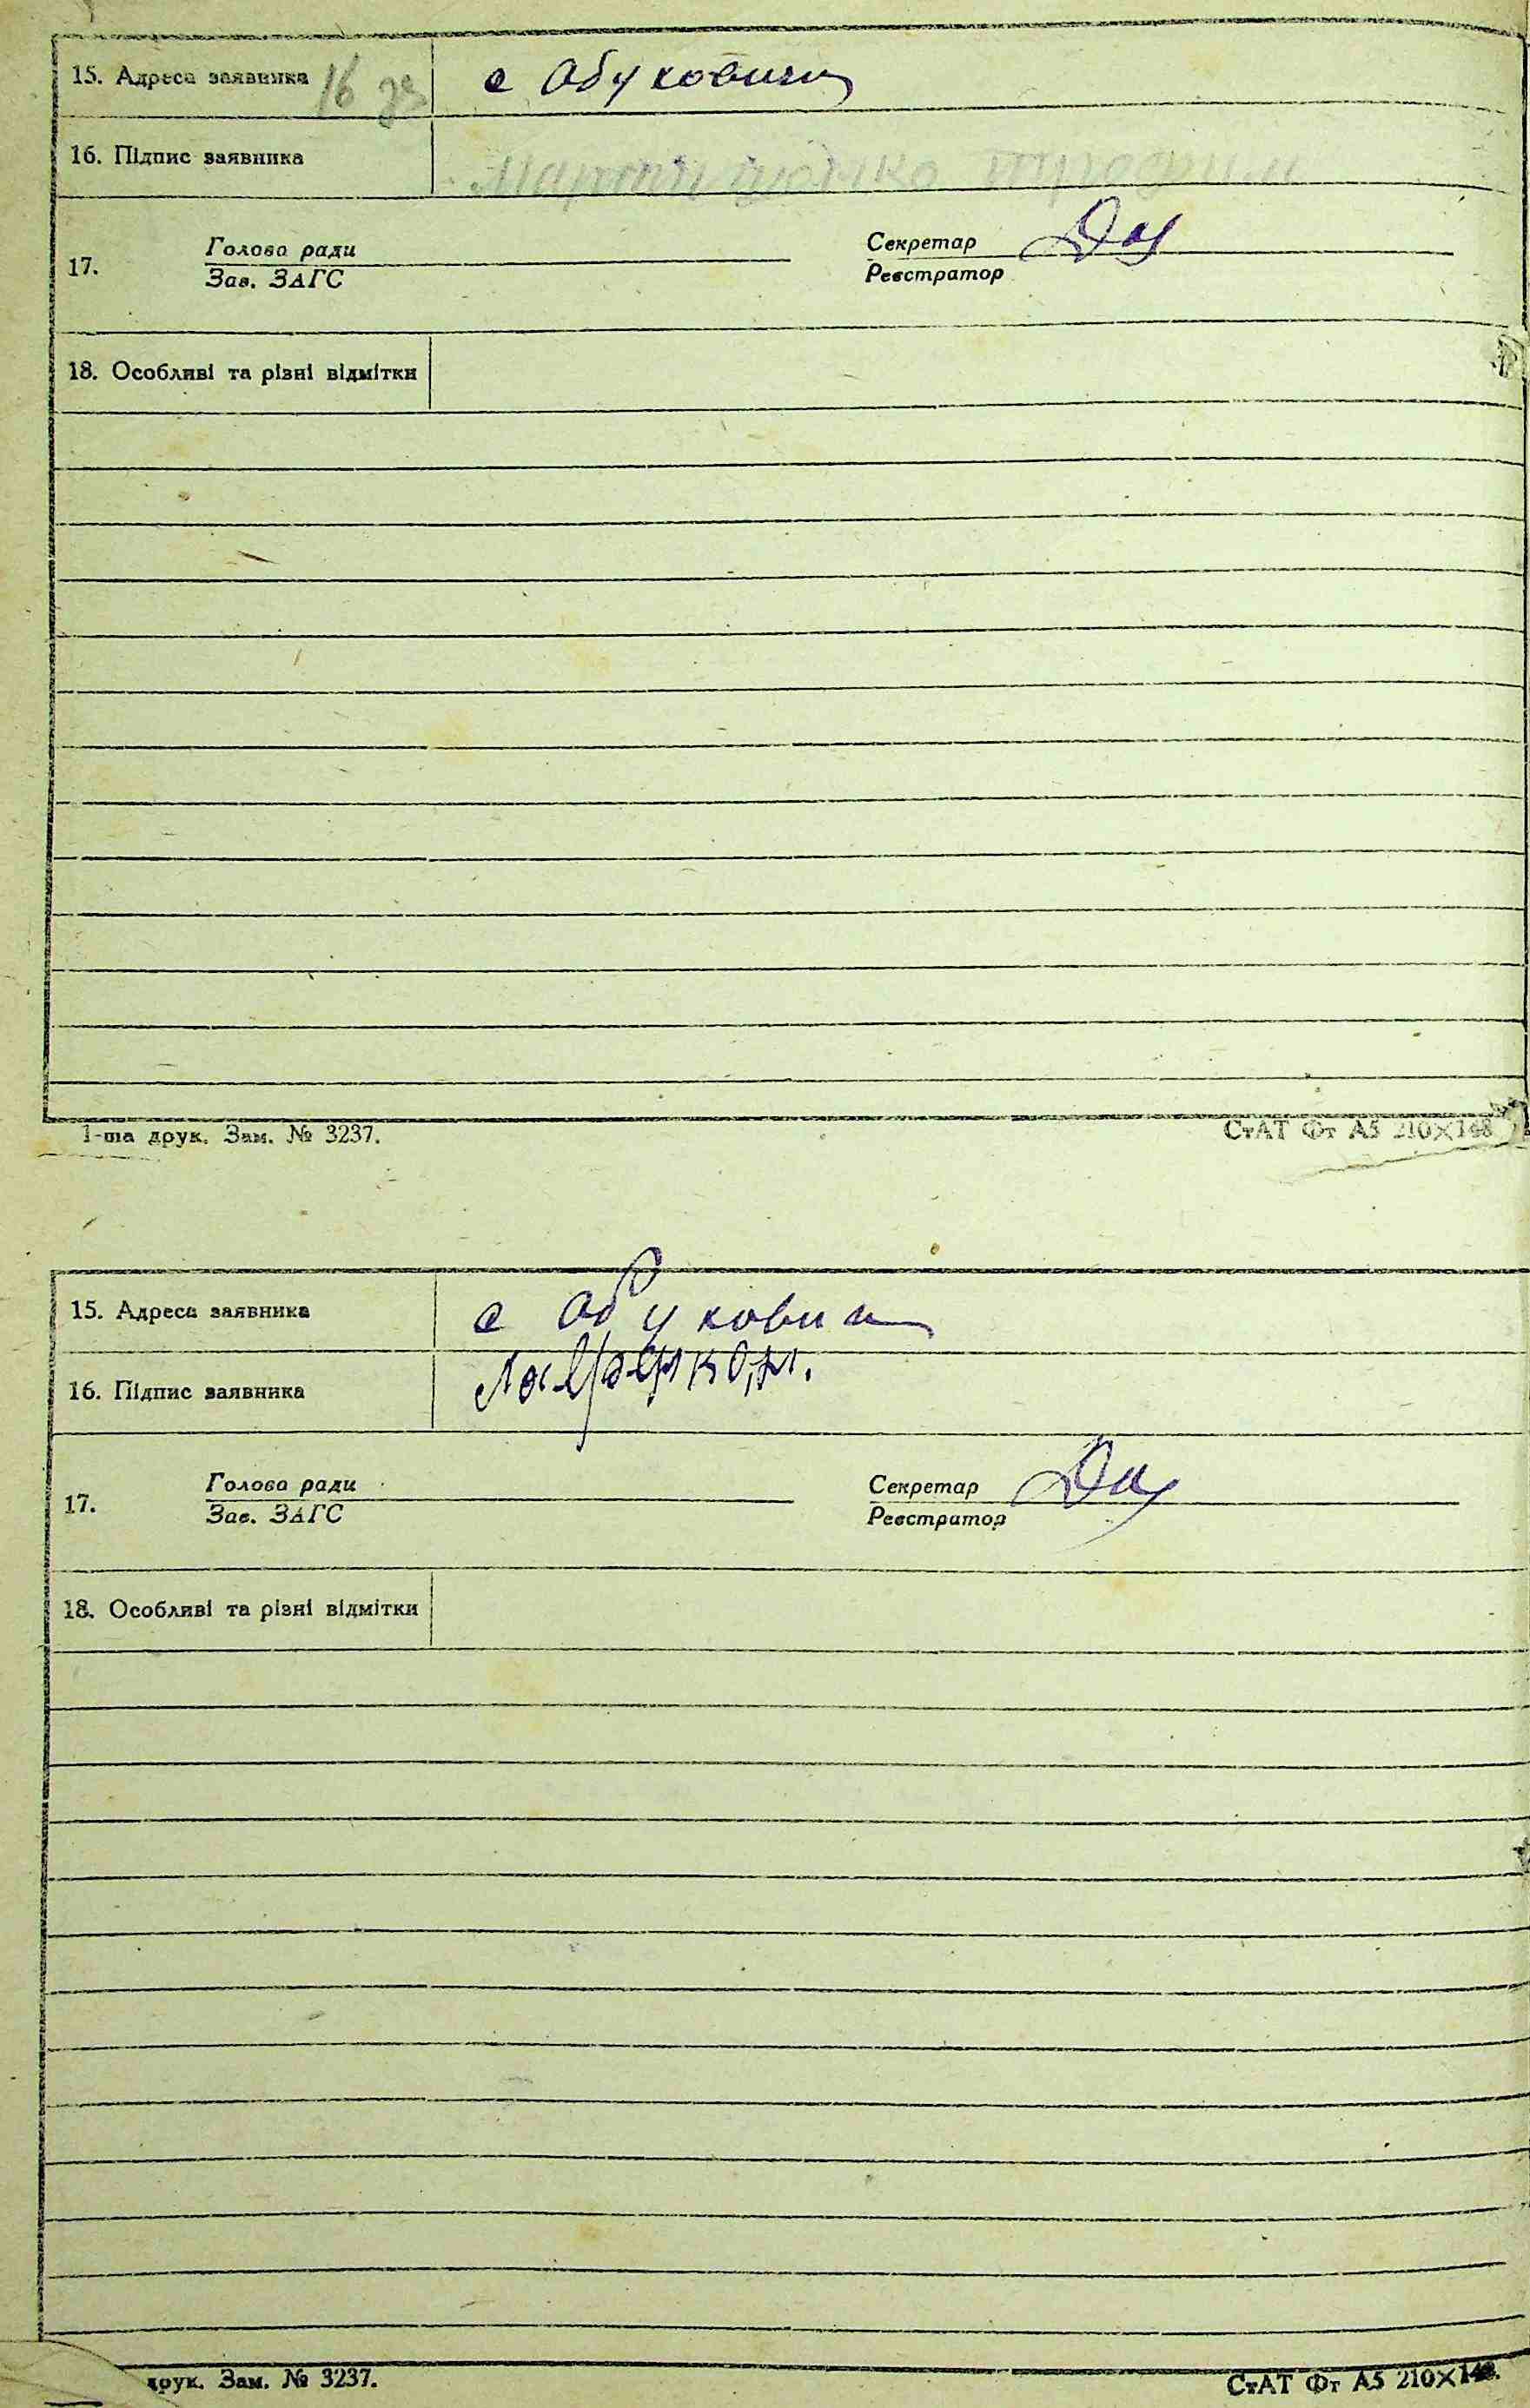 15. Адреса заявника 16 с Обуковичи
16. Підпис заявника Трофим
Голова ради Секретар
17.
Зав. ЗАГС Реєстратор
18. Особливі та різні відмітки
1-ша друк. Зам. № 3237. СтАТ Фт А5 210×148
15. Адреса заявника с Обуковичи
16. Підпис заявника
Голова ради Секретар
17.
Зав. ЗАГС Реєстратор
18. Особливі та різні відмітки
друк. Зам. № 3237. СтАТ Фт А5 210×148.